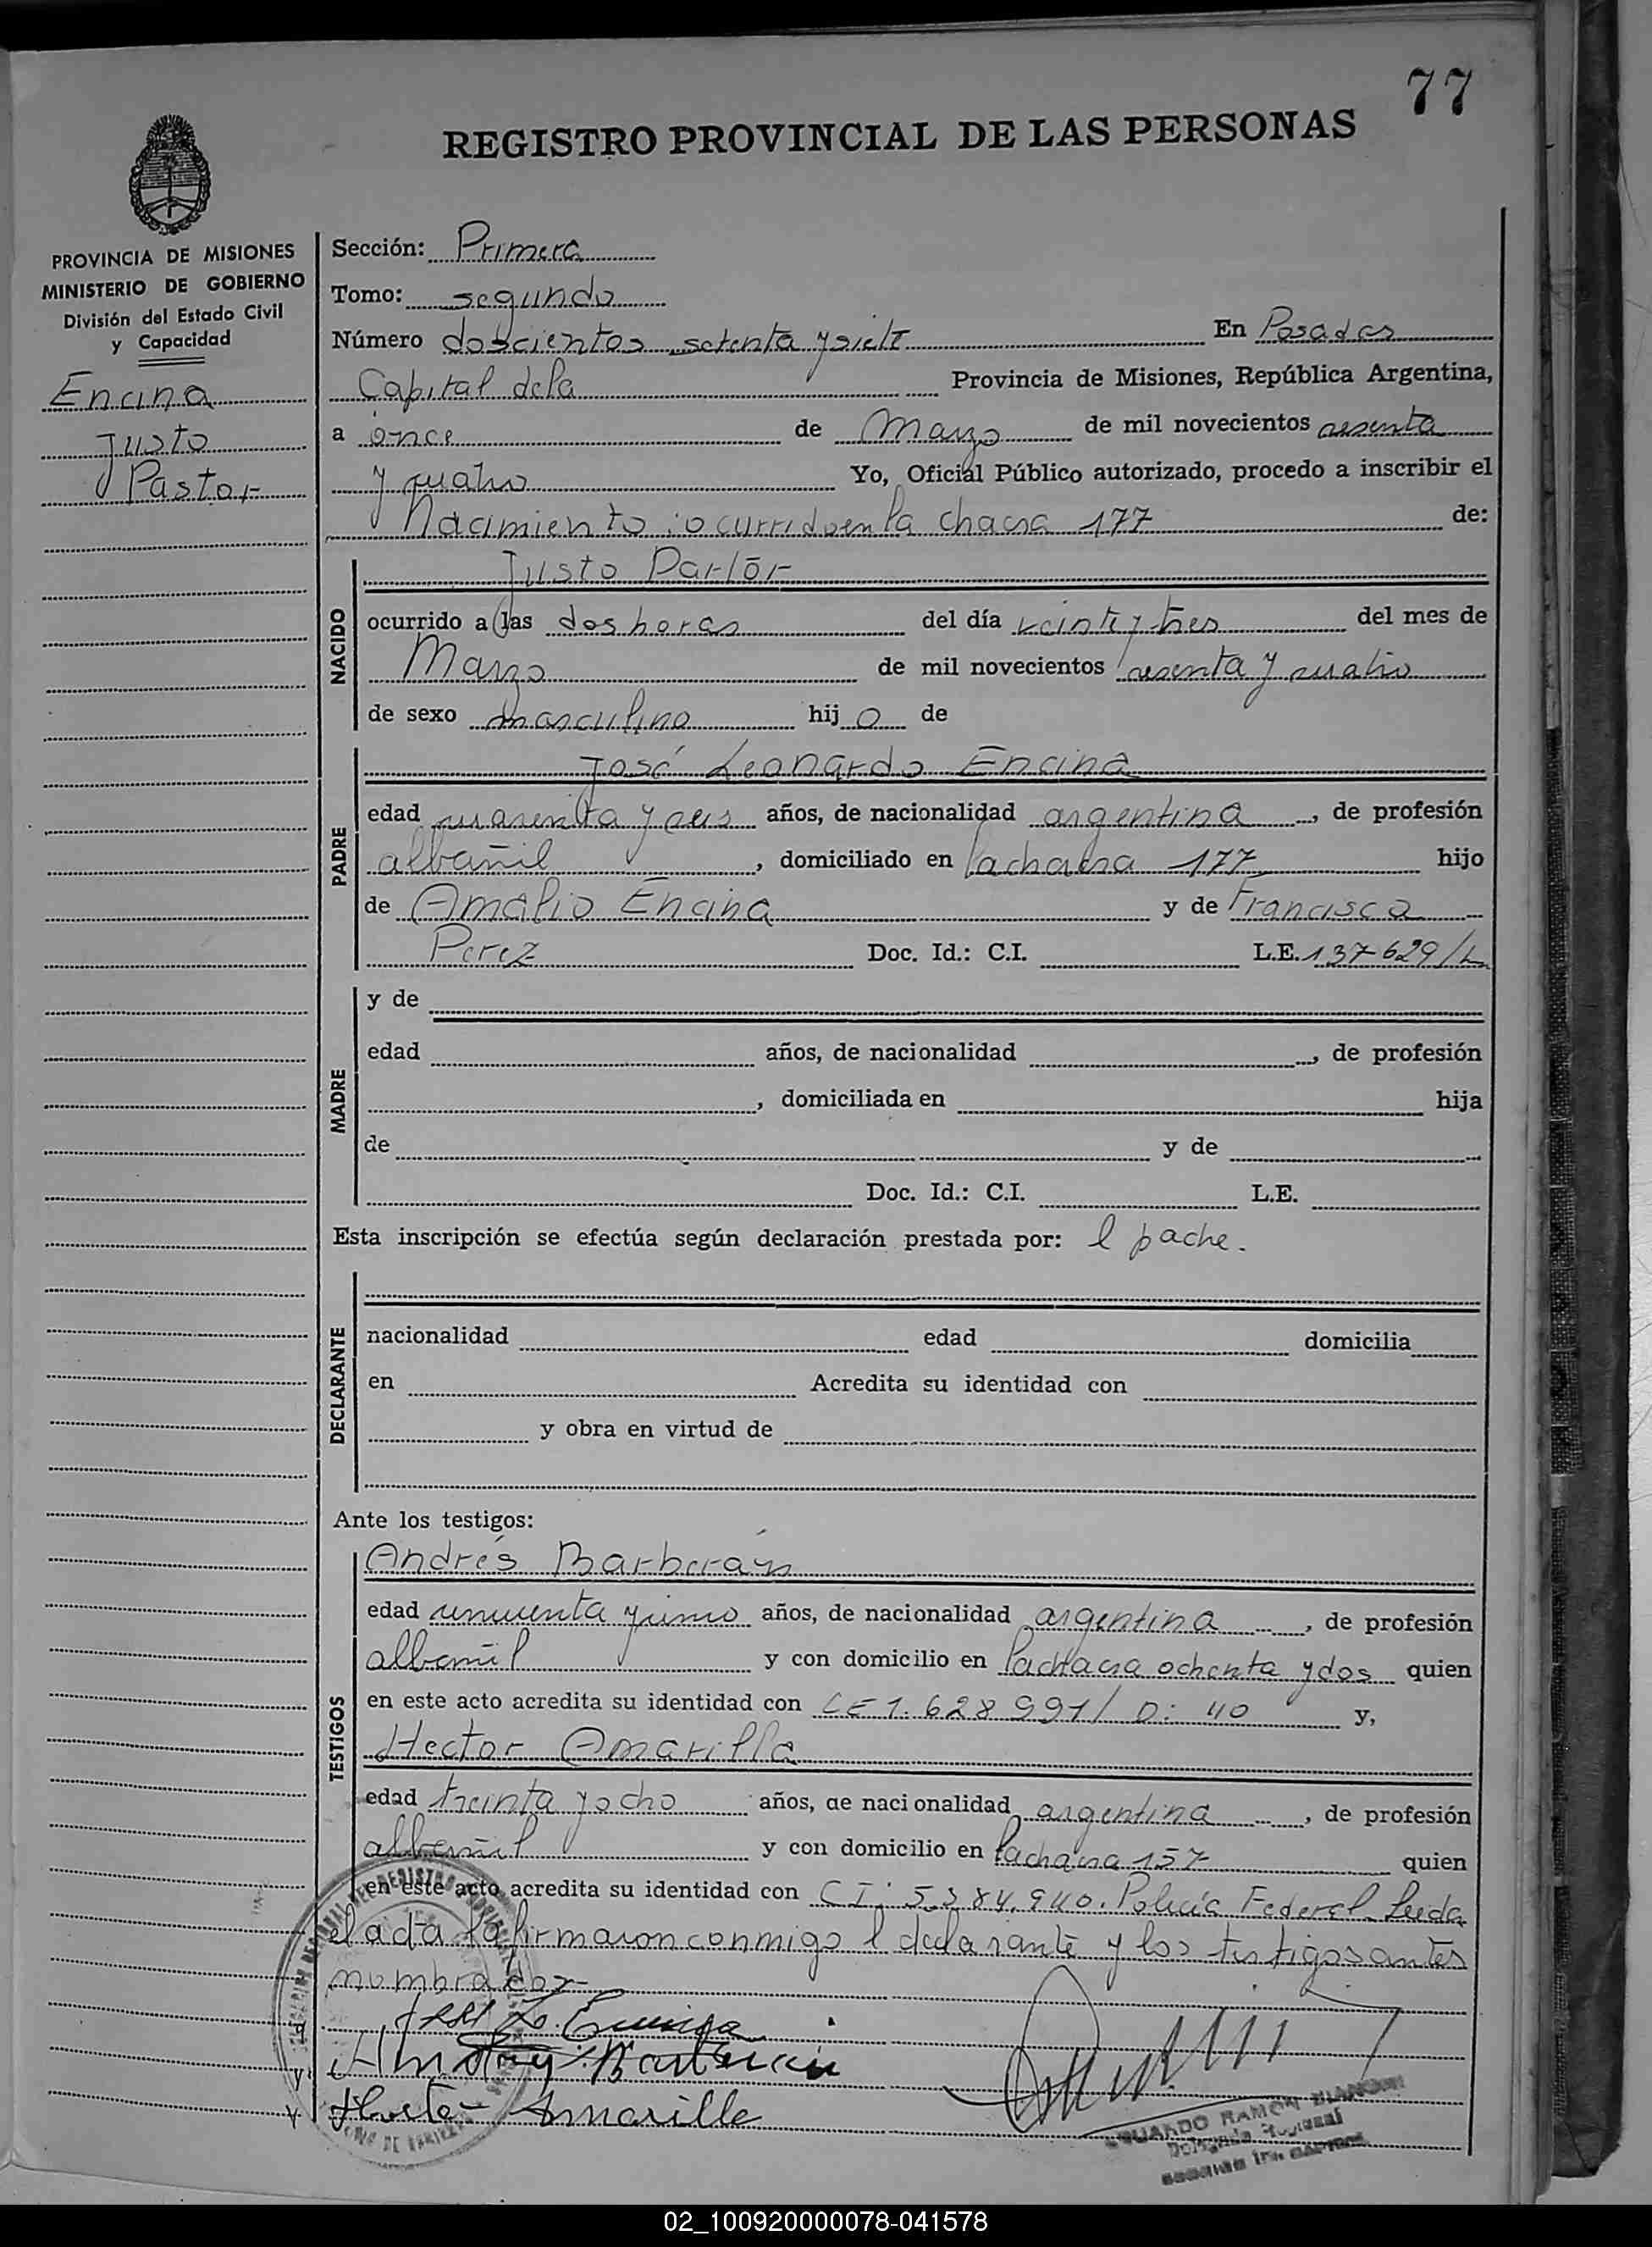 77
REGISTRO PROVINCIAL DE LAS PERSONAS
PROVINCIA DE MISIONES
MINISTERIO DE GOBIERNO
División del Estado Civil
y Capacidad
Encina
Justo
Pastor
Sección: Primera
Tomo: segundo
Número doscientos setenta y siete En Posadas
Capital de la Provincia de Misiones, República Argentina,
a once de Marzo de mil novecientos sesenta
y cuatro Yo, Oficial Público autorizado, procedo a inscribir el
Nacimiento: ocurrido en la chacra 177 de:
NACIDO
Justo Pastor
ocurrido a las dos horas del día veinte y tres del mes de
Marzo de mil novecientos sesenta y cuatro
de sexo masculino hijo de
PADRE
José Leonardo Encina
edad cuarenta y seis años, de nacionalidad argentina, de profesión
albañil, domiciliado en la chacra 177 hijo
de Amalio Encina y de Francisca
Perez Doc. Id.: C.I. L.E. 137629/
MADRE
y de
edad años, de nacionalidad , de profesión
, domiciliada en hija
de y de
Doc. Id.: C.I. L.E.
Esta inscripción se efectúa según declaración prestada por: l padre.
DECLARANTE
nacionalidad edad domicilia
en Acredita su identidad con
y obra en virtud de
Ante los testigos:
TESTIGOS
Andrés Barberán
edad cincuenta y cinco años, de nacionalidad argentina, de profesión
albañil y con domicilio en la chacra ochenta y dos quien
en este acto acredita su identidad con LE 1.628991/ D: 40 y,
Hector Amarilla
edad treinta y ocho años, de nacionalidad argentina, de profesión
albañil y con domicilio en la chacra 157 quien
en este acto acredita su identidad con C I: 5.384.940. Policía Federal Leida
el acta la firmaron conmigo l declarante y los testigos antes
nombrados
José L. Encina
Andrés Barberán
Hector Amarilla
EDUARDO RAMON BIANCHI
Delegado Regional
02_100920000078-041578